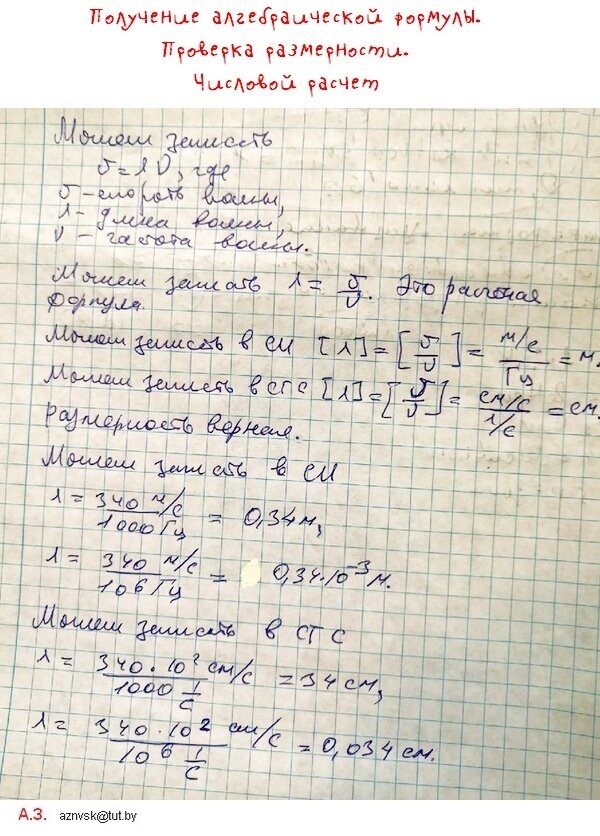 Получение алгебраической формулы.
Проверка размерности.
Числовой расчет
Можем записать
υ = λ ν, где
υ - скорость волны,
λ - длина волны,
ν - частота волны.
Можем записать λ = υ/ν. Это расчетная
формула.
Можем записать в СИ [λ] = [υ/ν] = м/с / Гц = м.
Можем записать в СГС [λ] = [υ/ν] = см/с / 1/с = см.
Размерность верная.
Можем записать в СИ
λ = 340 м/с / 1000 Гц = 0,34 м,
λ = 340 м/с / 10⁶ Гц = 0,34·10⁻³ м.
Можем записать в СГС
λ = 340·10² см/с / 1000 1/с = 34 см,
λ = 340·10² см/с / 10⁶ 1/с = 0,034 см.
А.З. aznvsk@tut.by